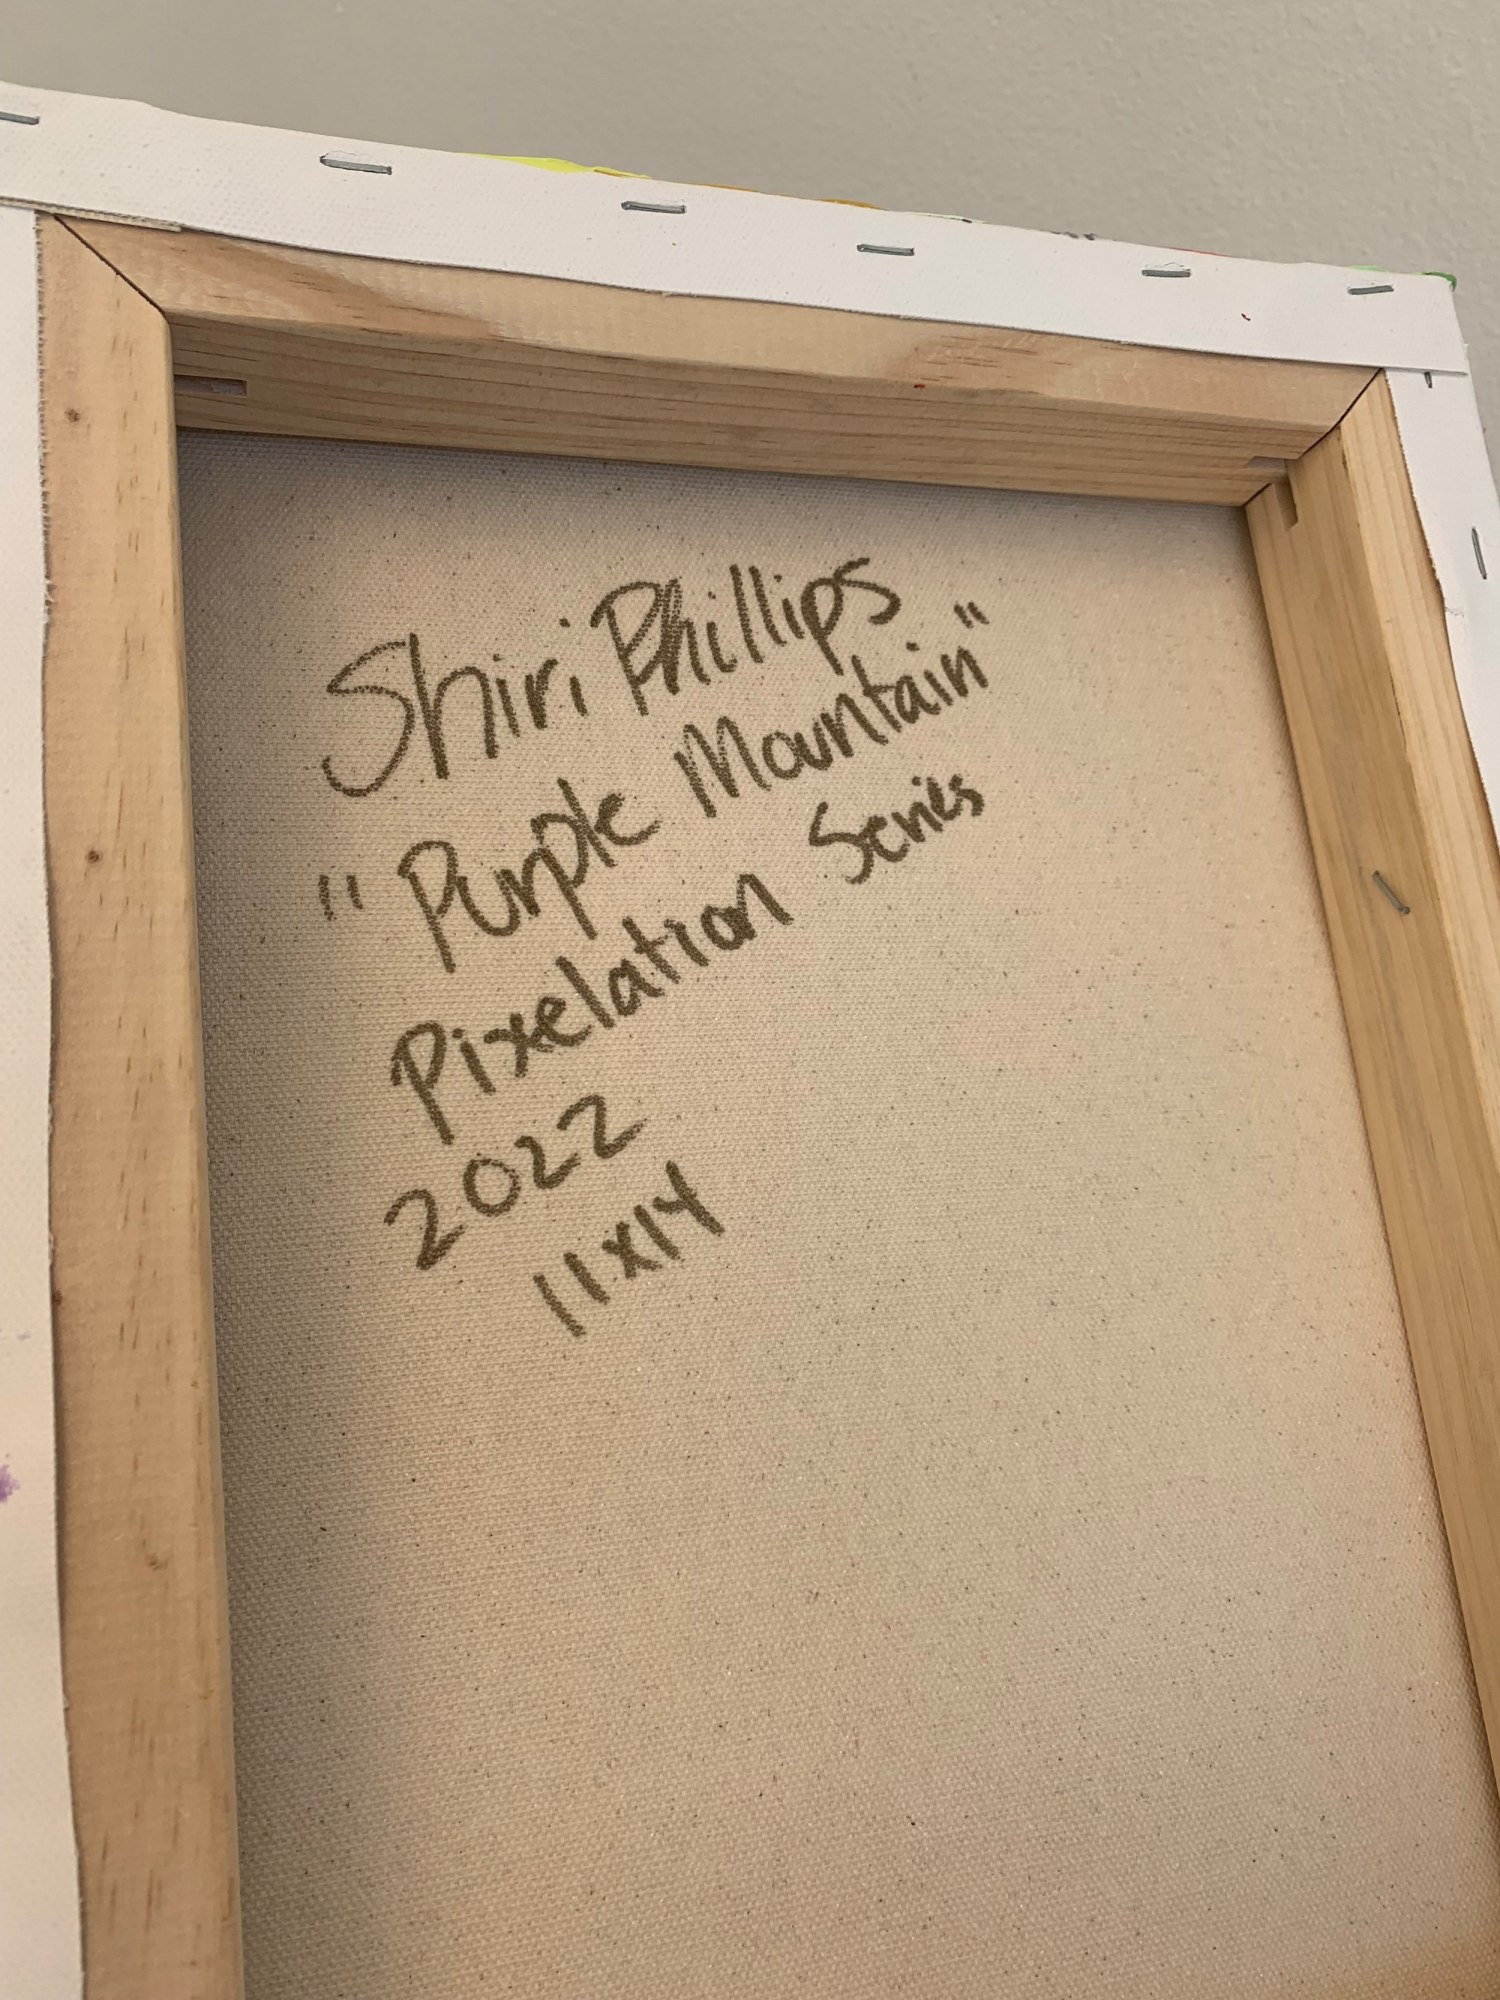 Shiri Phillips
"Purple Mountain"
Pixelation Series
2022
11x14